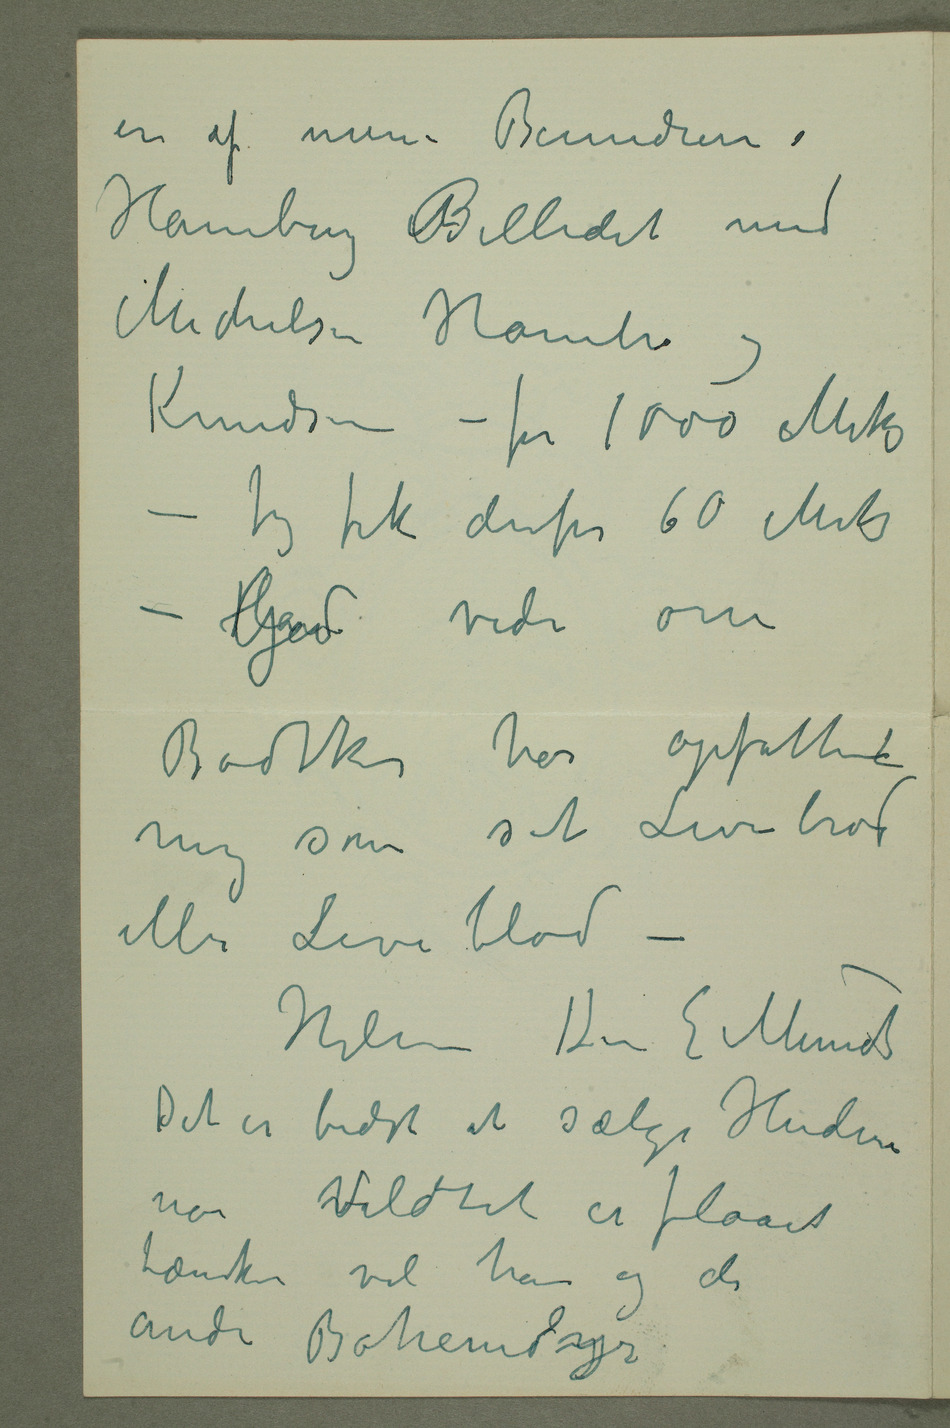 en af mine Beundrere i
Hamburg Billedet med
Michelsen Hambro og
Knudsen – for 1000 Mks
– Jeg fik derfor 60 Mks
– vide om
Bødtker har opfattet
mig som sit Levebrød
eller Leveblod –
Hilsen Din E Munch
Det er bedst at sælge Huden
når Vildtet er flaaet
tænker vel han og de
andre Bohemdyr